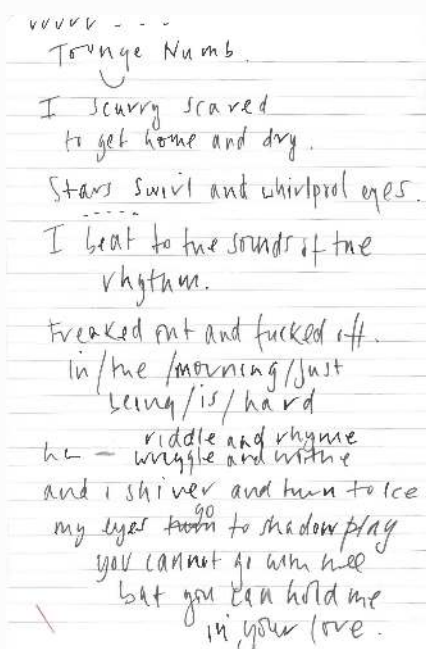 vvvvv - - - -
Tounge Numb.
I scurry scared
to get home and dry.
Stars swirl and whirlpool eyes.
I beat to the sounds of the
rhythm.
Freaked out and fucked off.
in/the/morning/just
being/is/hard
riddle and rhyme
wriggle and writhe
and i shiver and turn to Ice
my eyes turn go to shadow play
you cannot go with me
but you can hold me
in your love.